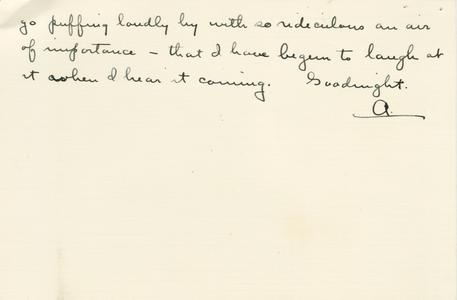 go puffing loudly by with so rediculous an air
of importance – that I have begun to laugh at
it when I hear it coming. Goodnight.
A.